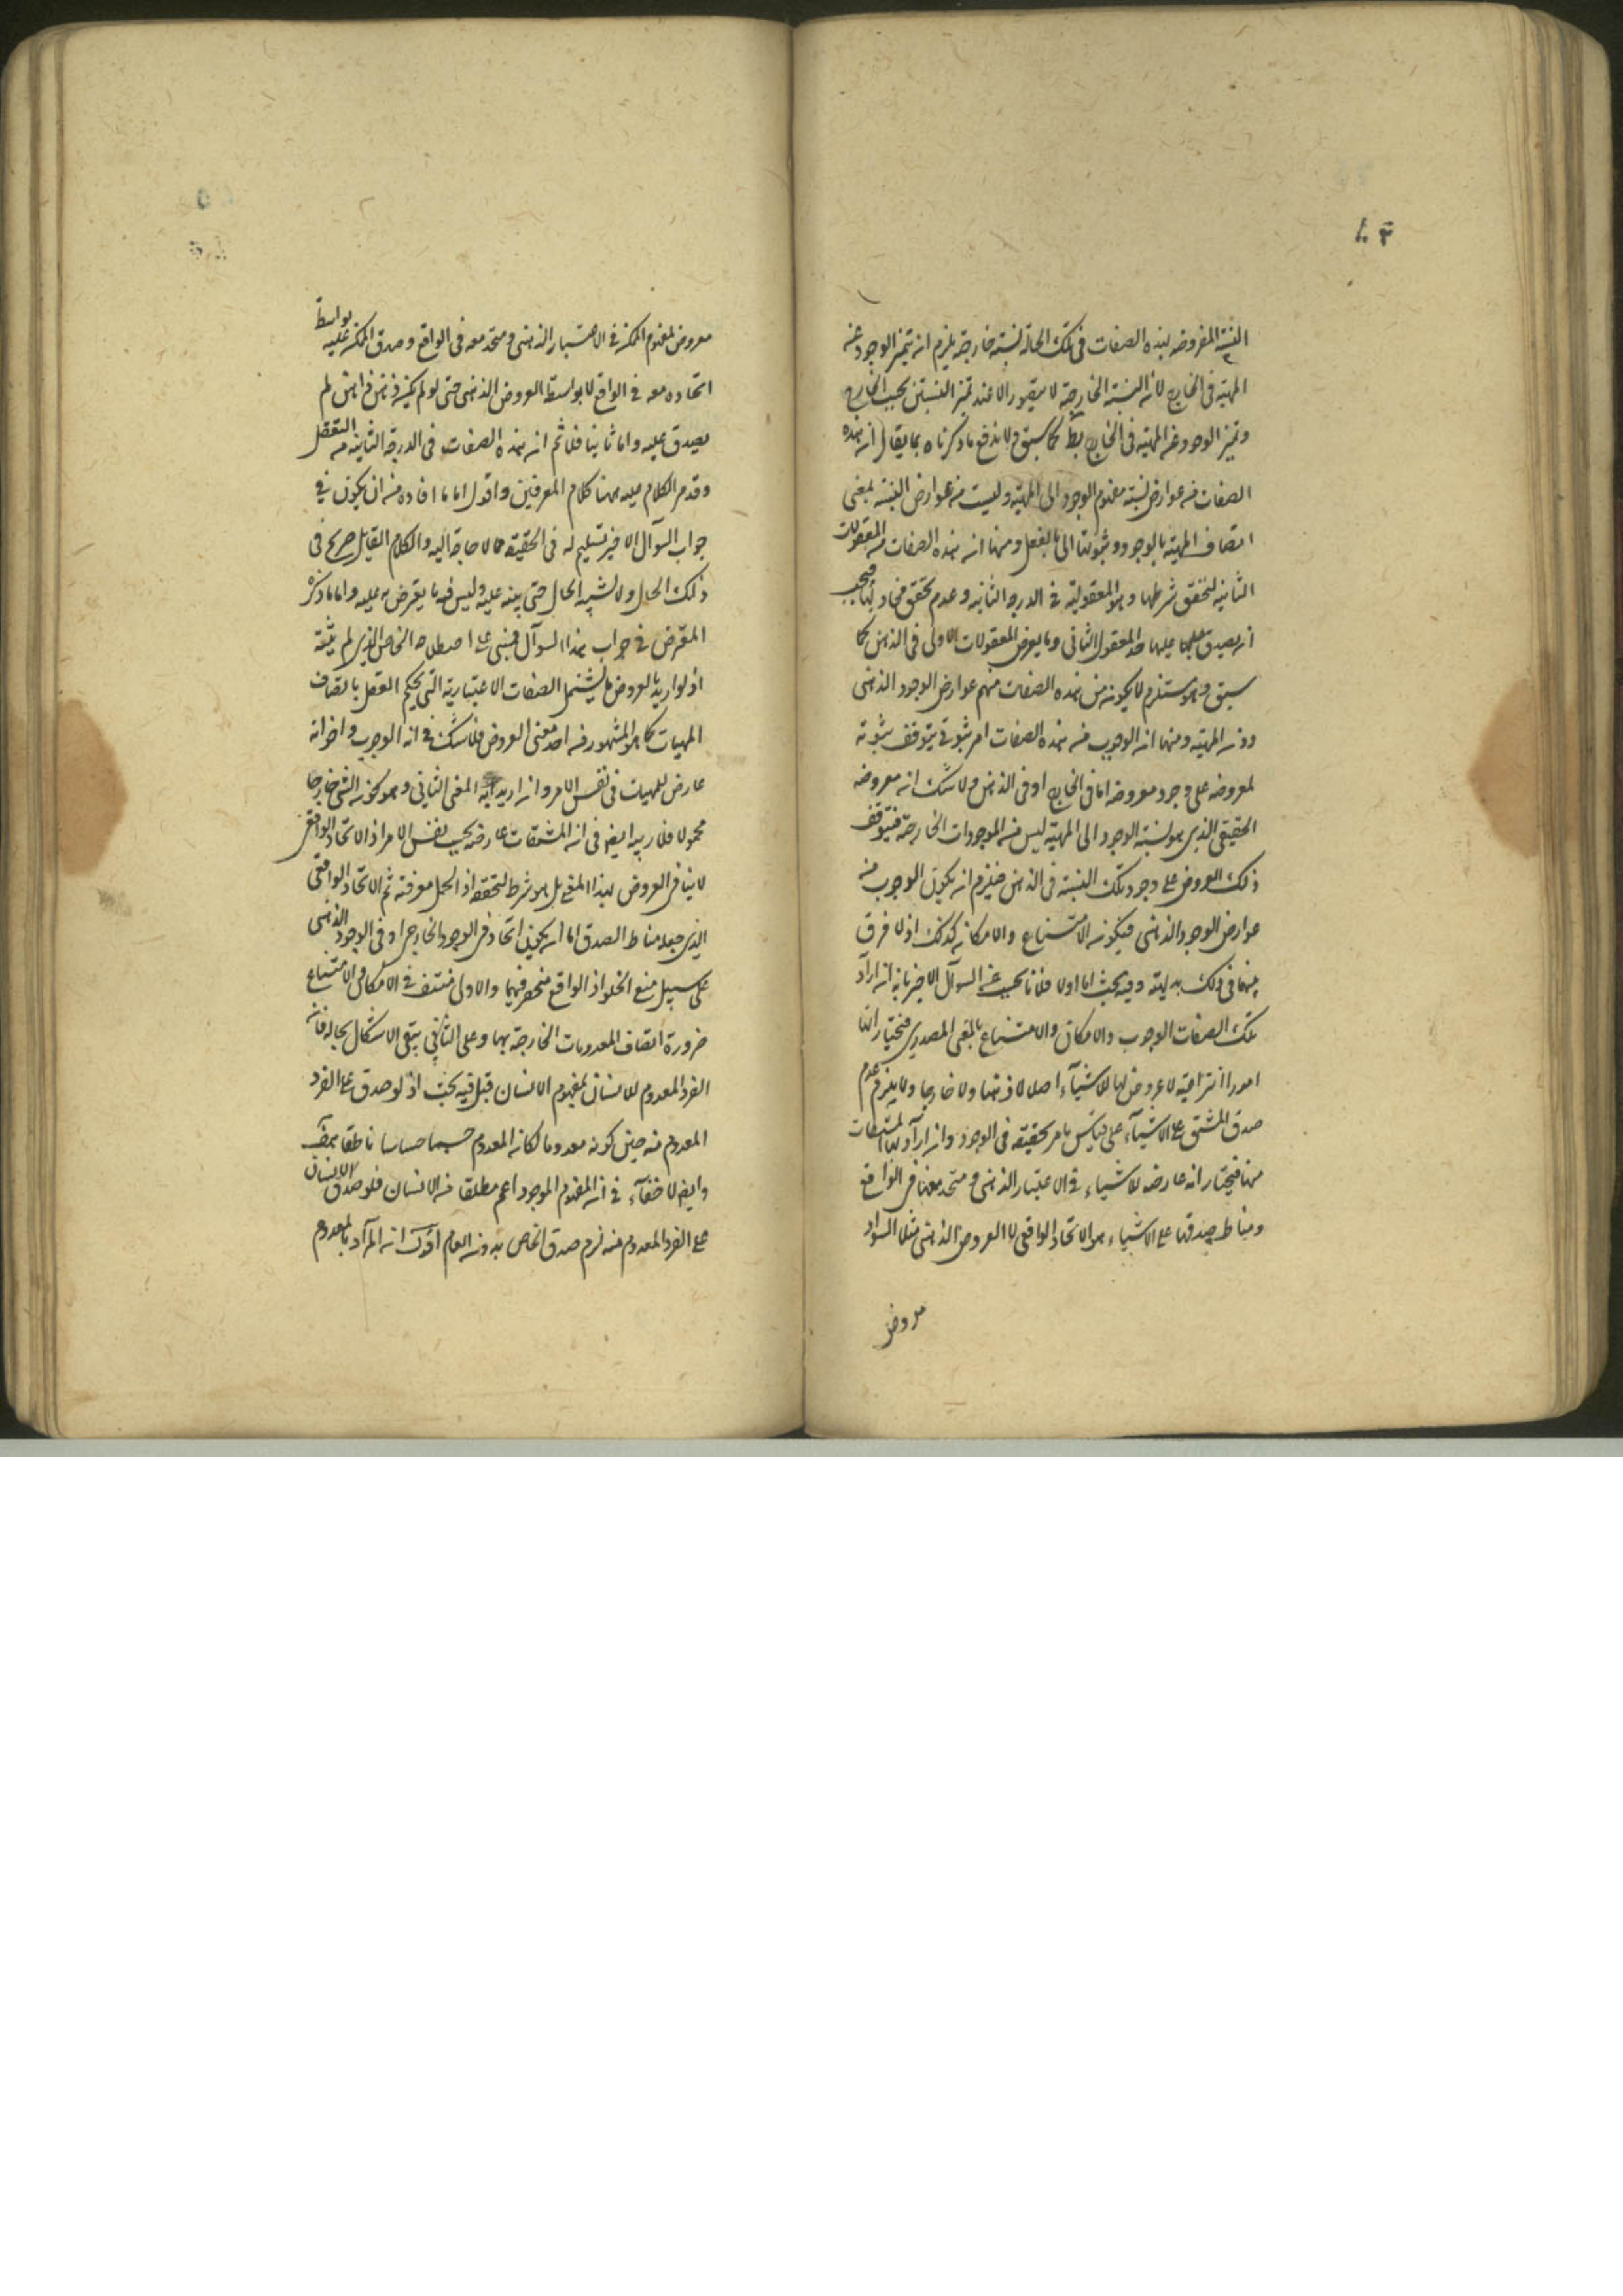 ٨٣
النسبة المفروضة لهذه الصفات فى تلك الحالة نسبة خارجية يلزم ان يتميز الوجود عن
المهية فى الخارج لأن النسبة الخارجية لا يتصور الا عند تميز المنتسبين بحسب الخارج
وتميز الوجود عن المهية فى الخارج بط كما سبق ولا يندفع ما ذكرناه بما يقال ان هذه
الصفات من عوارض نسبة مفهوم الوجود الى المهية وليست من عوارض النسبة بمعنى
اتصاف المهية بالوجود وثبوتها الى بالفعل ومنها ان هذه الصفات من المعقولات
الثانية لتحقق شرطها وهو المعقولية فى الدرجة الثانية وعدم تحقق محاذ لها فيجب
ان يصدق عليها حد المعقول الثانى وما يعرض المعقولات الاولى فى الذهن كما
سبق وهو مستلزم لكونه من هذه الصفات منهم عوارض الوجود الذهنى
دون المهية ومنها ان الوجوب من هذه الصفات امر ثبوتى يتوقف ثبوته
لمعروضه على وجود معروضه اما فى الخارج او فى الذهن ولا شك ان معروضه
الحقيقى الذى هو نسبة الوجود الى المهية ليس من الموجودات الخارجية فيتوقف
ذلك العروض على وجود تلك النسبة فى الذهن فيلزم ان يكون الوجوب من
عوارض الوجود الذهنى فيكون الامتناع والامكان كذلك اذ لا فرق
بينها فى ذلك بديهة وفيه بحث اما اولا فلانا نجيب عن السوآل الاخير بانه ان اراد
بتلك الصفات الوجوب والامكان والامتناع بالمعنى المصدرى فنختار انها
امورا انتزاعية لا عروض لها للاشيآء اصلا لا ذهنا ولا خارجا ولا يلزم عدم
صدق المشتق على الاشيآء على قياس ما مر تحقيقه فى الوجود وان اراد بها المشتقات
منها فنختار انه عارضه للاشياء فى الاعتبار الذهنى و متحد معها فى الواقع
ومناط صدقها على الاشياء هو الاتحاد الواقعى لا العروض الذهنى مثلا السواد
معروض
معروض لمفهوم الممكن فى الاعتبار الذهنى ومتحد معه فى الواقع وصدق الممكن عليه بواسطة
اتحاده معه فى الواقع لا بواسطة العروض الذهنى حتى لو لم يكن فى ذهن ذاهن لم
يصدق عليه واما ثانيا فلا ثم ان هذه الصفات فى الدرجة الثانية من التعقل
وقد مر الكلام عليه ههنا كلام المعرفين واقول اما ما افاده من ان يكون فى
جواب السوآل الاخير تسليم له فى الحقيقة مما لا حاجة اليه والكلام القايل صريح فى
ذلك الحال ولا لشبه الحال حتى ينبه عليه وليس فيه ما يتعرض به عليه واما ما ذكره
المعترض فى جواب هذا السوآل فمبنى على اصطلاحه الخاص الذى لم يثبته
اذ لو اريد بالعروض ما يشتمل الصفات الاعتبارية التى يحكم العقل باتصاف
المهيات كما هو المشهور من احد معنى العروض فلا شك فى ان الوجوب واخواته
عارض للمهيات فى نفس الامر وان اريد به المعنى الثانى وهو كون الشئ خارجا
محمولا فلا ريب ايضا فى ان المشتقات عارضه بحسب نفس الامر اذ الاتحاد الواقعى
لا ينافى العروض بهذا المعنى بل هو شرط لتحققه اذ الحمل معرفته ثم الاتحاد الواقعى
الذى جعله مناط الصدق اما ان يكون اتحاد فى الوجود الخارجى او فى الوجود الذهنى
على سبيل منع الخلو اذ الواقع منحصر فيهما والاول منتف فى الامكان والامتناع
ضرورة اتصاف المعدومات الخارجية بهما وعلى الثانى يبقى الاشكال بحاله فانه
الفرد المعدوم للانسان بمفهوم الانسان قيل فيه بحث اذ لو صدق على الفرد
المعدوم منه حين كونه معدوما لكان المعدوم جسما حساسا ناطقا
وايضا لا خفآء فى ان المفهوم الموجود اعم مطلقا من الانسان فلو صدق الانسان
على الفرد المعدوم منه لزم صدق الخاص بدون العام اقول ان المرآد بالمعدوم